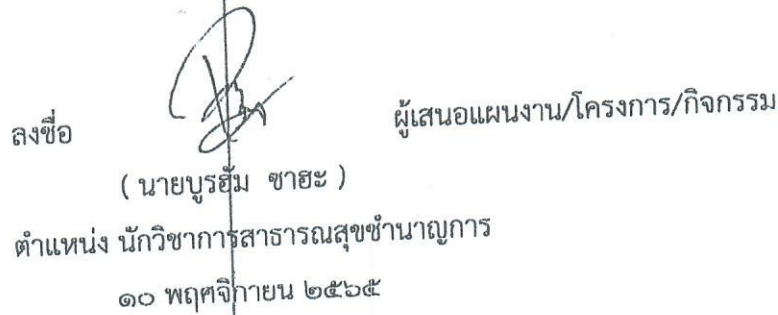 ลงชื่อ ผู้เสนอแผนงาน/โครงการ/กิจกรรม
( นายบูรฮัม ซาฮะ )
ตำแหน่ง นักวิชาการสาธารณสุขชำนาญการ
๑๐ พฤศจิกายน ๒๕๖๕